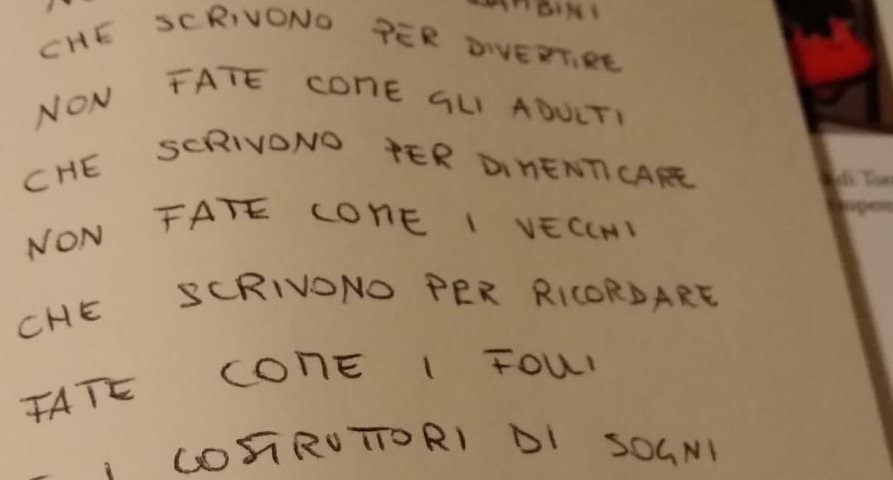 BAMBINI
CHE SCRIVONO PER DIVERTIRE
NON FATE COME GLI ADULTI
CHE SCRIVONO PER DIMENTICARE
NON FATE COME I VECCHI
CHE SCRIVONO PER RICORDARE
FATE COME I FOLLI
I COSTRUTTORI DI SOGNI
di